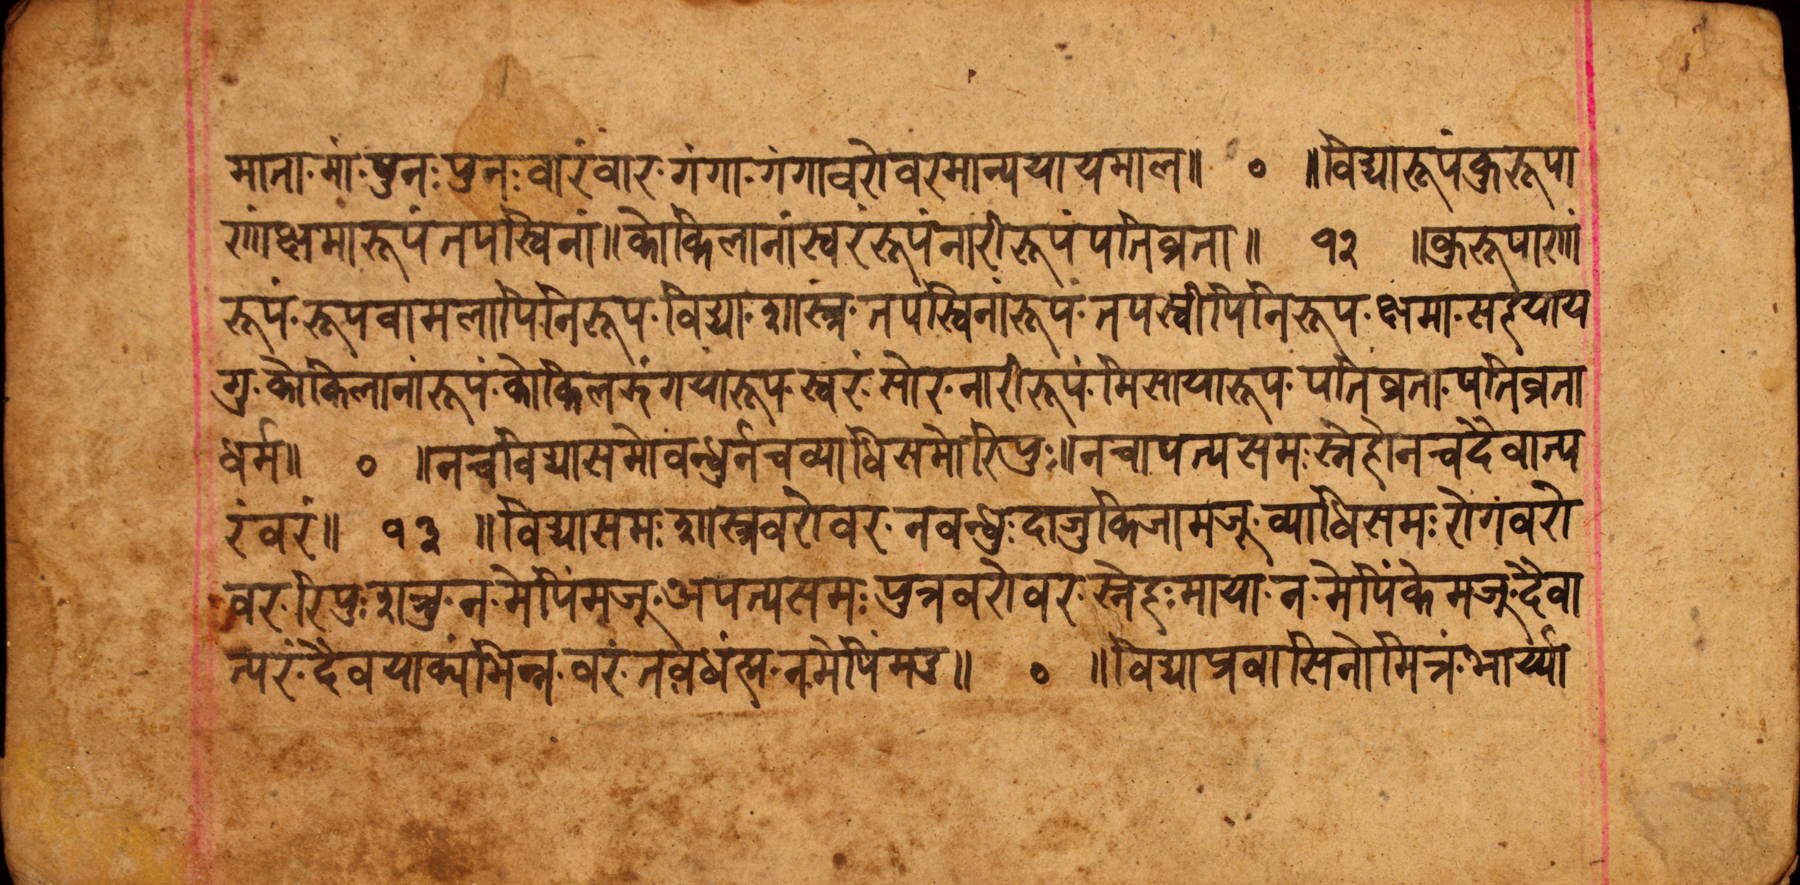 माना॰मां॰पुनः पुनः वारंवार॰गंगा॰गंगावरोवरमान्ययायमाल॥ ० ॥विद्यारूपंकुरूपा
राणांक्षमारूपंतपस्विनां॥कोकिलानांस्वरंरूपंनारीरूपंपतिव्रता॥ १२ ॥कुरूपाराणां
रूपं॰रूपवामलापिनिरूप॰विद्या॰शास्त्र॰तपस्विनांरूपं॰तपस्वीपिनिरूप॰क्षमा॰सहयाय
गु॰कोकिलानांरूपं॰कोकिलझंगयारूप॰स्वरं॰सोर॰नारीरूपं॰मिसायारूप॰पतिव्रता॰पतिव्रता
धर्म॥ ० ॥नचविद्यासमोवन्धुर्नचव्याधिसमोरिपुः॥नचापत्यसमःस्नेहोनचदैवात्प
रंवरं॥ १३ ॥विद्यासमः शास्त्रवरोवर॰नवन्धुः दाजुकिजामजू॰व्याधिसमः रोगंवरो
वर॰रिपुः शत्रु॰न॰मेपिंमजू॰अपत्यसमः पुत्रवरोवर॰स्नेहः माया॰न॰मेपिंकेमजू॰दैवा
त्परं॰दैवयाक्यंभिन्न॰वरं॰ ॥ ० ॥विद्याप्रवासिनोमित्रं॰भार्य्या